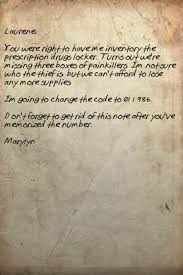 Laurene
You were right to have me inventory the
prescription drugs locker. Turns out we're
missing three boxes of painkillers. Im not sure
who the thief is but we can't afford to lose
any more supplies
Im going to change the code to 01 1986.
Don't forget to get rid of this note after you've
memorized the number.
Marylyn